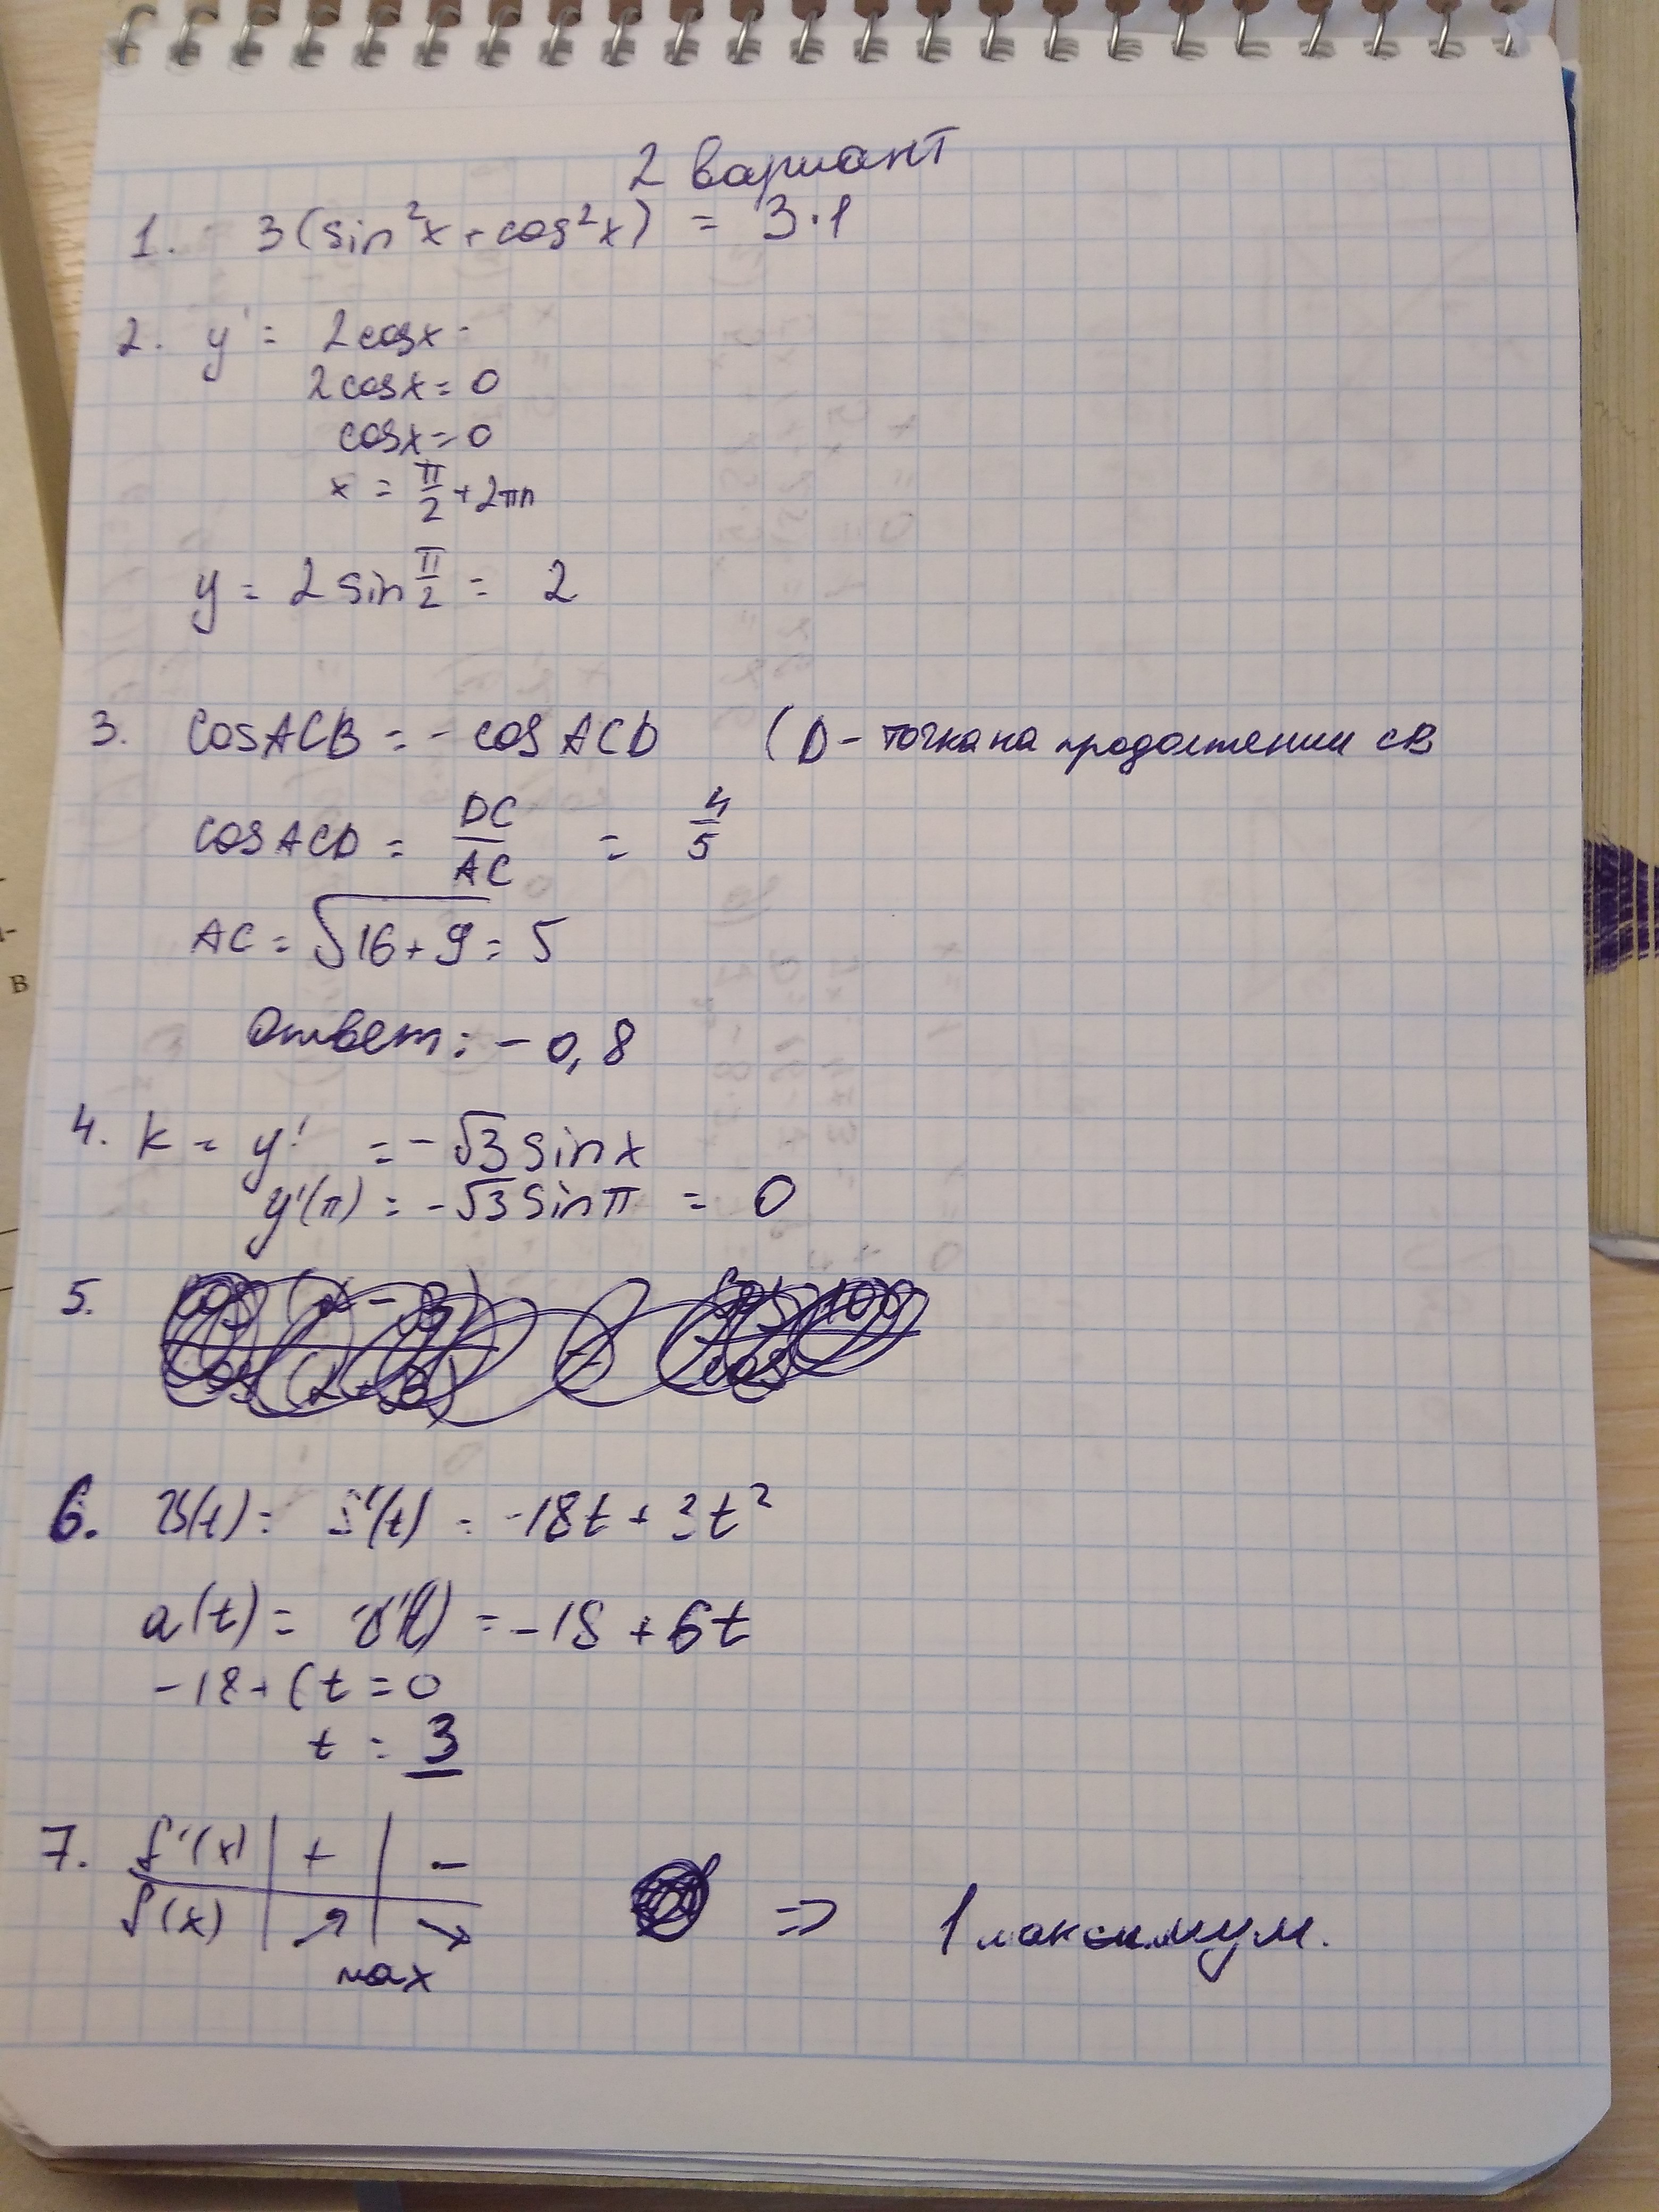 2 вариант
1. 3(sin²x + cos²x) = 3·1
2. y' = 2cosx =
2cosx = 0
cosx = 0
x = π/2 + 2πn
y = 2 sin π/2 = 2
3. cosACB = - cosACD (D - точка на продолжении CB
cosACD = DC/AC = 4/5
AC = √16+9 = 5
Ответ: -0,8
4. k = y' = -√3 sinx
y'(π) = -√3 sinπ = 0
5.
6. v(t) = S'(t) = -18t + 3t²
a(t) = v'(t) = -18 + 6t
-18 + 6t = 0
t = 3
7. f'(x) + -
f(x) ↗ ↘ ⇒ 1 максимум.
max